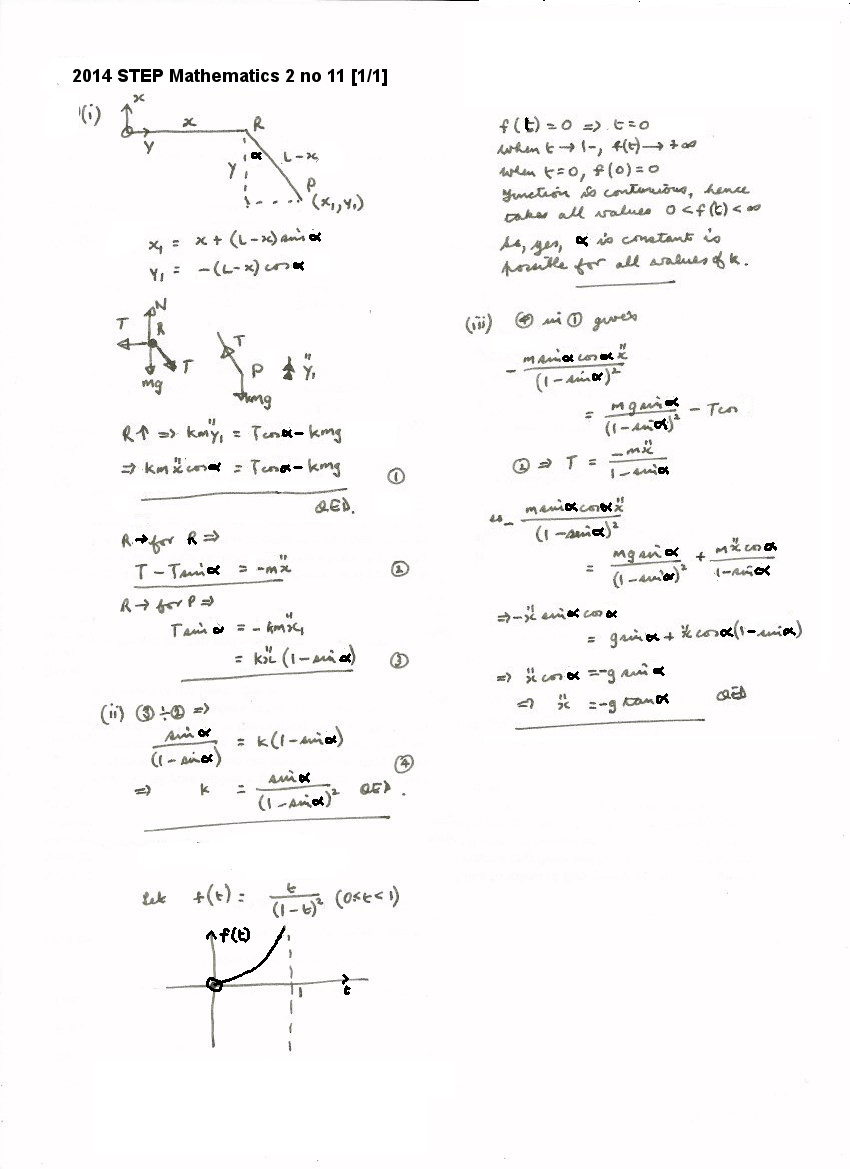 2014 STEP Mathematics 2 no 11 [1/1]
(i)
x
x
R
y
y
α
L-x
P
(x₁, y₁)
x₁ = x + (L-x) sin α
y₁ = -(L-x) cos α
N
T
R
T
mg
T
P
kmg
ÿ₁
R↑ ⇒ kmÿ₁ = Tcosα - kmg
⇒ kmẍcosα = Tcosα - kmg ①
QED.
R→ for R ⇒
T - Tsinα = -mẍ ②
R→ for P ⇒
Tsinα = -kmẍ₁
= kẍ(1-sinα) ③
(ii) ③÷② ⇒
sinα/(1-sinα) = k(1-sinα)
⇒ k = sinα/(1-sinα)² QED. ④
Let f(t) = t/(1-t)² (0<t<1)
f(t)
1
t
f(t) = 0 ⇒ t = 0
when t → 1-, f(t) → +∞
when t = 0, f(0) = 0
function is continuous, hence
takes all values 0 < f(t) < ∞
So, yes, α is constant is
possible for all values of k.
(iii) ④ in ① gives
- m sinα cosα ẍ/(1-sinα)²
= mg sinα/(1-sinα)² - Tcos
② ⇒ T = -mẍ/(1-sinα)
so - m sinα cosα ẍ/(1-sinα)²
= mg sinα/(1-sinα)² + mẍ cosα/(1-sinα)
⇒ -ẍ sinα cosα
= g sinα + ẍ cosα(1-sinα)
⇒ ẍ cosα = -g sinα
⇒ ẍ = -g tanα QED